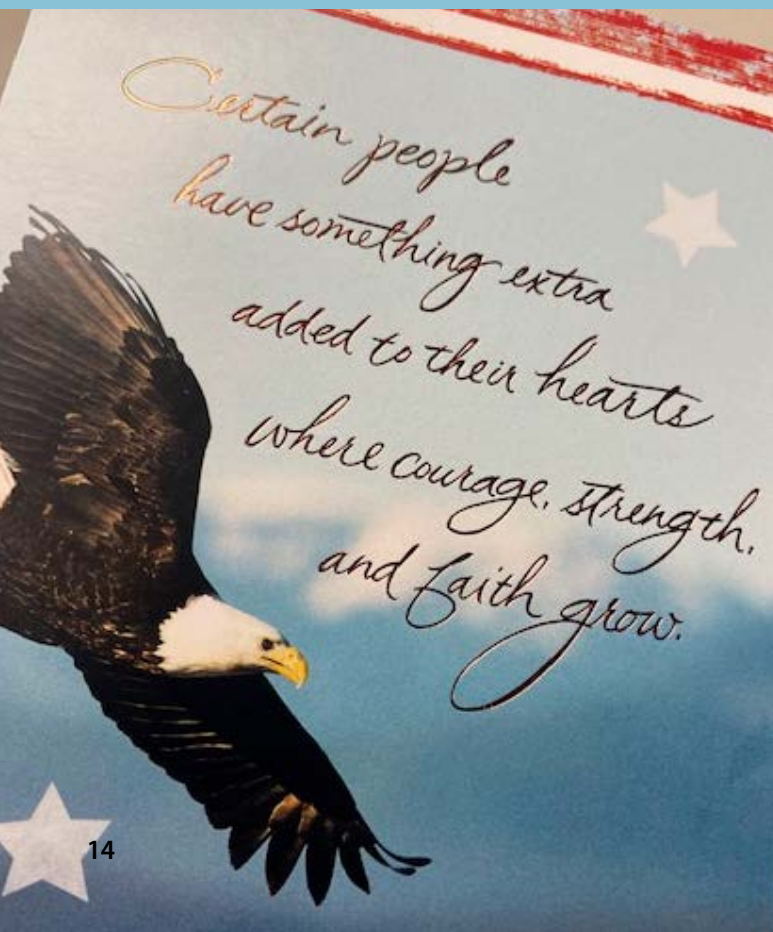 Certain people
have something extra
added to their hearts
where courage, strength,
and faith grow.
14